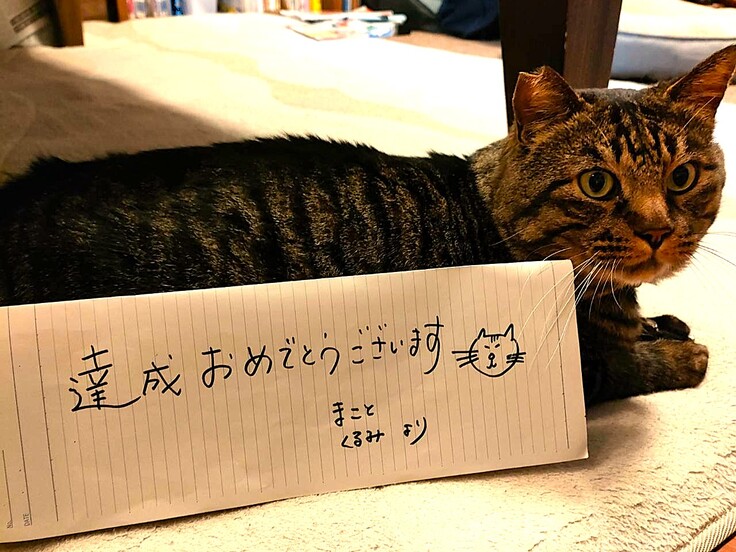 達成おめでとうございます
まこと
くるみ より
No.
DATE